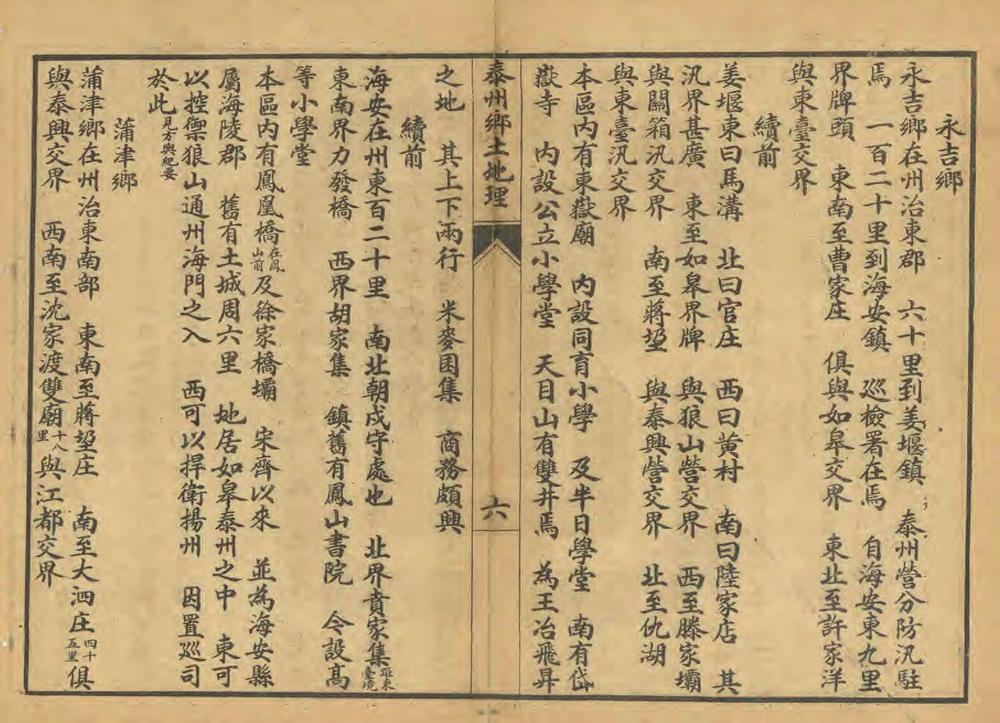 永吉鄉
永吉鄉在州治東郡 六十里到姜堰鎮 泰州營分防汛駐
焉 一百二十里到海安鎮 巡檢署在焉 自海安東九里
界牌頭 東南至曹家庄 俱與如皋交界 東北至許家洋
與東臺交界
續前
姜堰東曰馬溝 北曰官庄 西曰黄村 南曰陸家店 其
汛界甚廣 東至如皋界牌 與狼山營交界 西至滕家壩
與關箱汛交界 南至蔣垈 與泰興營交界 北至仇湖
與東臺汛交界
本區内有東嶽廟 内設同育小學 及半日學堂 南有岱
嶽寺 内設公立小學堂 天目山有雙井焉 為王冶飛昇
泰州鄉土地理
六
之地 其上下兩行 米麥囷集 商務頗興
續前
海安在州東百二十里 南北朝戍守處也 北界賁家集距東臺境
東南界力發橋 西界胡家集 鎮舊有鳳山書院 今設高
等小學堂
本區内有鳳凰橋在鳳山前及徐家橋壩 宋齊以來 並為海安縣
屬海陵郡 舊有土城周六里 地居如皋泰州之中 東可
以控禦狼山通州海門之入 西可以捍衛揚州 因置巡司
於此見方輿紀要
蒲津鄉
蒲津鄉在州治東南部 東南至蔣垈庄 南至大泗庄四十五里俱
與泰興交界 西南至沈家渡雙廟十八里與江都交界